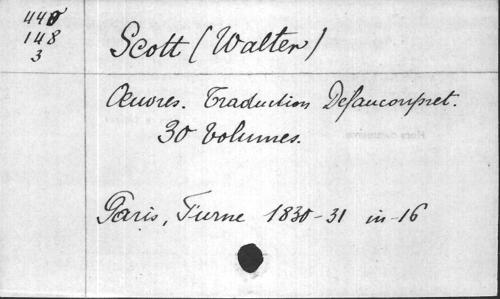 440
148
3
Scott (Walter)
Œuvres. Traduction Defauconpret.
30 Volumes.
Paris, Furne 1830-31 in-16